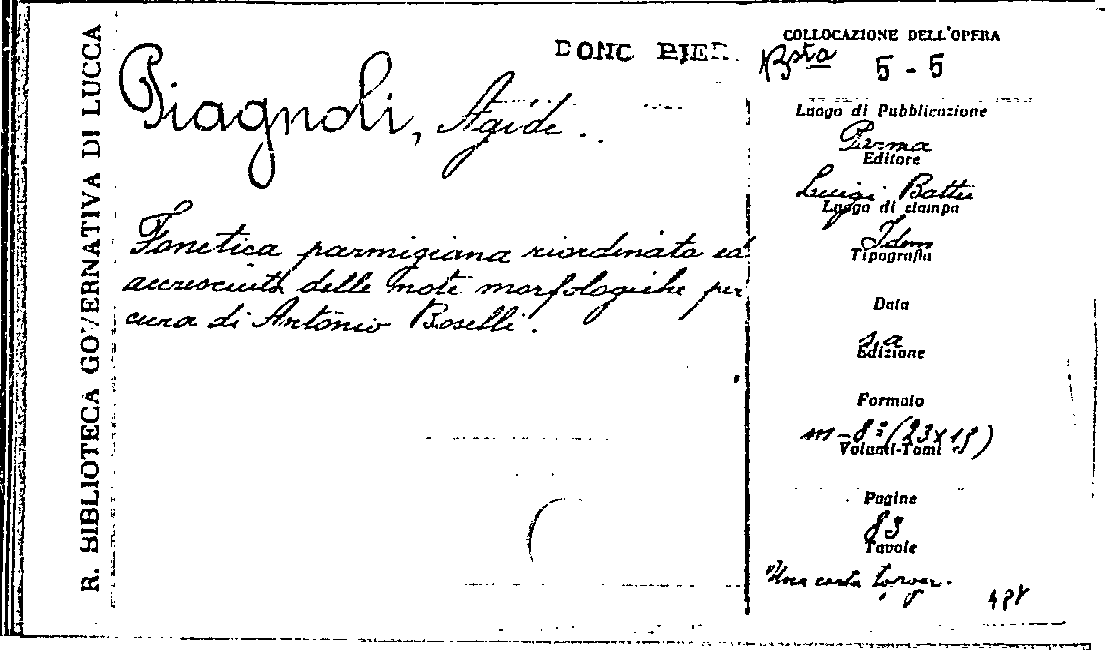 R. BIBLIOTECA GOVERNATIVA DI LUCCA
Piagnoli, Agide.
Fonetica parmigiana riordinata ed
accresciuta delle note morfologiche per
cura di Antonio Boselli.
COLLOCAZIONE DELL'OPERA
Bsta 5-5
Luogo di Pubblicazione
Parma
Editore
Luigi Battei
Luogo di stampa
Idem
Tipografia
Data
s.a
Edizione
Formato
in-8° (23x15)
Volumi-Tomi
Pagine
83
Tavole
Una carta